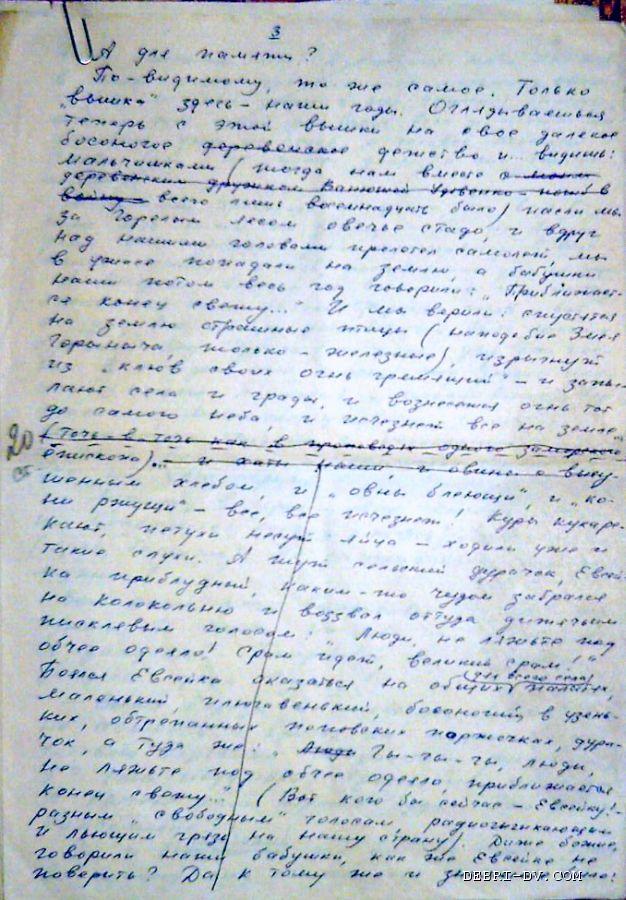 3
А для памяти?
По-видимому, то же самое. Только
„вышка" здесь – наши годы. Оглядываешься
теперь с этой вышки на свое далекое
босоногое деревенское детство и... видишь:
мальчишками (тогда нам вместе с моим
деревенским дружком Ванюшей Удовенко – погиб в
войну – всего лишь восемнадцать было) пасли мы
за Горелым лесом овечье стадо, и вдруг
над нашими головами пролетел самолет, мы
в ужасе попадали на землю, а бабушки
наши потом весь год говорили: „Приближает-
ся конец свету..." И мы верили: спустятся
на землю страшные птицы (наподобие Змея
Горыныча, только – железные), изрыгнут
из „клюв своих огнь гремящий" – и запы-
лают села и грады, и вознесется огнь тот
до самого неба, и исчезнет все на земле
20 (Точь-в-точь как в проповеди одного заморского
епископа)... – и хаты наши, и овины с высу-
шенным хлебом, и „овны блеющи", и „ко-
ни ржущи" – все, все исчезнет! Куры кукаре-
кают, петухи несут яйца – ходили уже и
такие слухи. А тут сельский дурачок, Евсей-
ка приблудный, каким-то чудом забрался
на колокольню и воззвал оттуда дитячьим
писклявым голосом: „Люди, не ляжьте под
обчее одеяло! Срам идет, великий срам!"
(для всего села)
Боялся Евсейка оказаться на общих полатях,
маленький, плюгавенький, босоногий, в узень-
ких, обтрепанных поповских портчках, дура-
чок, а туда же: „Люди Гы-гы-гы, люди,
не ляжьте под обчее одеяло, приближается
конец свету..." (Вот кого бы сейчас – Евсейку! –
разным „свободным" голосам, радиогыгикающим
и льющим грязь на нашу страну). Даже божие,
говорили наши бабушки, как же Евсейке не
поверить? Да к тому же и
DEBRI-DV.COM